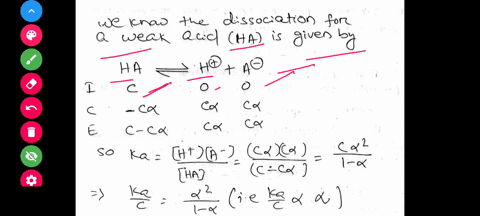 we know the dissociation for
a weak acid (HA) is given by
HA ⇌ H⊕ + A⊖
I C O O
C -Cα Cα Cα
E C-Cα Cα Cα
so Ka = [H+][A-]/[HA] = (Cα)(Cα)/(C-Cα) = Cα²/1-α
⇒ Ka/C = α²/1-α (i.e Ka/C α α)